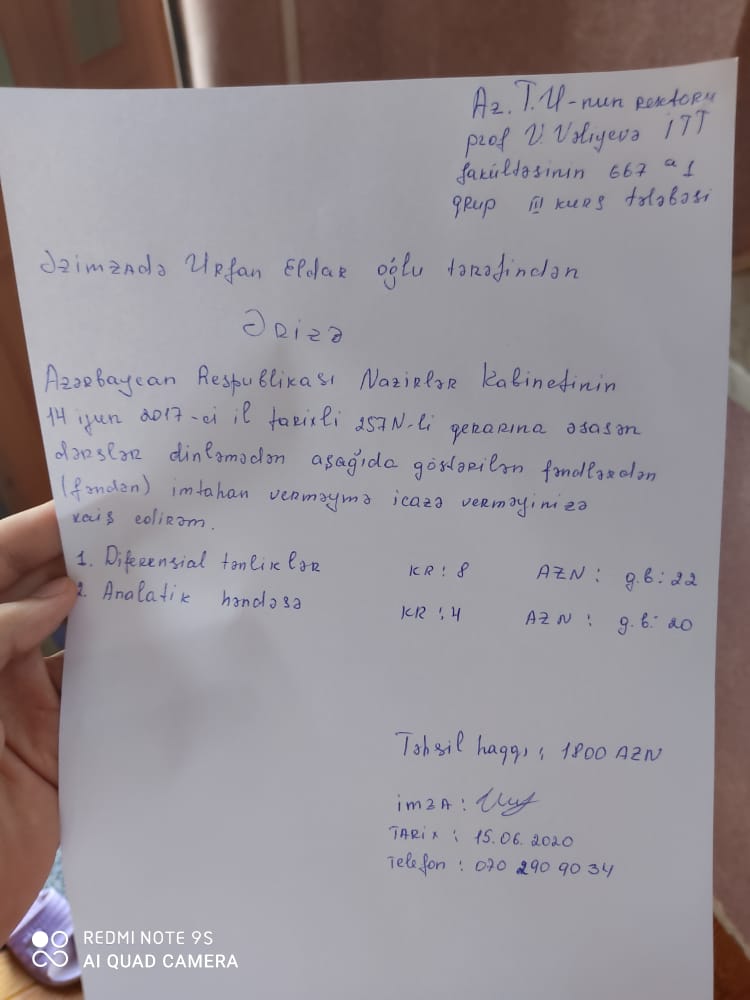 Az.T.U-nun rektoru
prof V.Vəliyevə İTT
fakültəsinin 667 a 1
qrup III kurs tələbəsi
Əzimzadə Urfan Eldar oğlu tərəfindən
Ərizə
Azərbaycan Respublikası Nazirlər Kabinetinin
14 iyun 2017-ci il tarixli 257N-li qərarına əsasən
dərslər dinləmədən aşağıda göstərilən fəndlərdən
(fəndən) imtahan verməymə icazə verməyinizə
xaiş edirəm.
1. Diferensial tənliklər KR: 8 AZN: g.b: 22
2. Analatik həndəsə KR: 4 AZN: g.b: 20
Təhsil haqqı: 1800 AZN
imza:
TARix: 15.06.2020
Telefon: 070 290 90 34
REDMI NOTE 9S
AI QUAD CAMERA